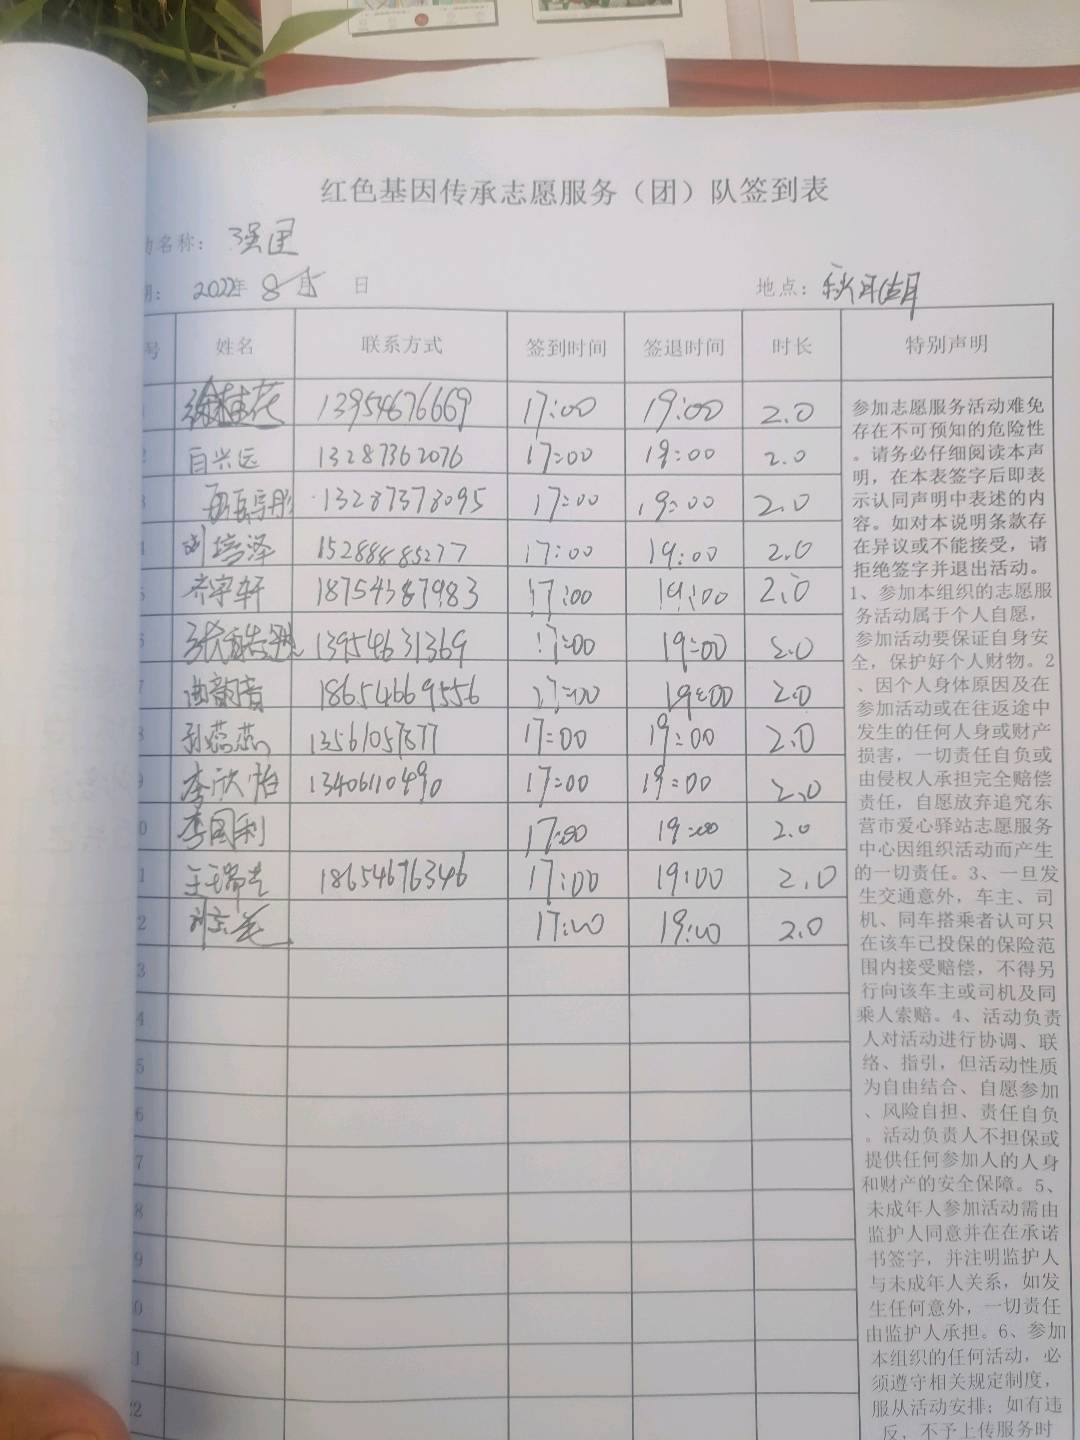 红色基因传承志愿服务（团）队签到表
动名称： 强国
期： 2022年 8月5 日 地点：
号 姓名 联系方式 签到时间 签退时间 时长 特别声明
徐桂花 13954676669 17:00 19:00 2.0
2 13287362076 17:00 19:00 2.0
3 13287378095 17:00 19:00 2.0
刘培泽 15288885277 17:00 19:00 2.0
齐宇轩 18754387983 17:00 19:00 2.0
13954631369 17:00 19:00 2.0
7 曲韵青 18654669556 17:00 19:00 2.0
孙蕊燕 13561057877 17:00 19:00 2.0
9 李欣怡 13406110490 17:00 19:00 2.0
0 李国利 17:00 19:00 2.0
1 18654676346 17:00 19:00 2.0
2 17:00 19:00 2.0
3
4
5
6
7
8
9
0
1
22
参加志愿服务活动难免
存在不可预知的危险性
。请务必仔细阅读本声
明，在本表签字后即表
示认同声明中表述的内
容。如对本说明条款存
在异议或不能接受，请
拒绝签字并退出活动。
1、参加本组织的志愿服
务活动属于个人自愿，
参加活动要保证自身安
全，保护好个人财物。2
、因个人身体原因及在
参加活动或在往返途中
发生的任何人身或财产
损害，一切责任自负或
由侵权人承担完全赔偿
责任，自愿放弃追究东
营市爱心驿站志愿服务
中心因组织活动而产生
的一切责任。3、一旦发
生交通意外，车主、司
机、同车搭乘者认可只
在该车已投保的保险范
围内接受赔偿，不得另
行向该车主或司机及同
乘人索赔。4、活动负责
人对活动进行协调、联
络、指引，但活动性质
为自由结合、自愿参加
、风险自担、责任自负
。活动负责人不担保或
提供任何参加人的人身
和财产的安全保障。5、
未成年人参加活动需由
监护人同意并在在承诺
书签字，并注明监护人
与未成年人关系，如发
生任何意外，一切责任
由监护人承担。6、参加
本组织的任何活动，必
须遵守相关规定制度，
服从活动安排；如有违
反，不予上传服务时